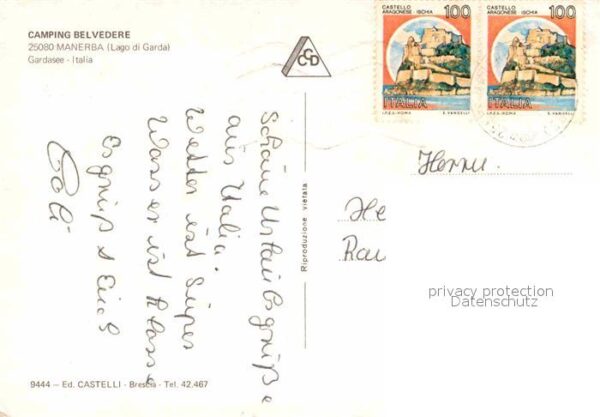 CAMPING BELVEDERE
25080 MANERBA (Lago di Garda)
Gardasee - Italia
CCD
CASTELLO
ARAGONESE - ISCHIA
100
ITALIA
I.P.Z.S. - ROMA
E. VANGELLI
CASTELLO
ARAGONESE - ISCHIA
100
ITALIA
I.P.Z.S. - ROMA
E. VANGELLI
Schöne Urlaubsgrüße
aus Italia.
Wetter ist Super
Wasser ist Klasse
Es grüßt Euch
Herrn
He
Rau
Riproduzione vietata
privacy protection
Datenschutz
9444 — Ed. CASTELLI - Brescia - Tel. 42.467